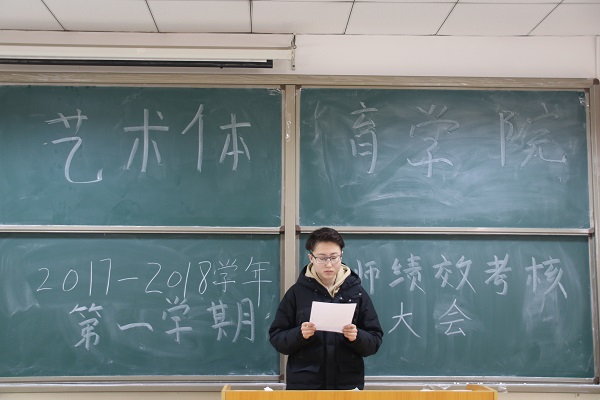 艺术体育学院
2017—2018学年
第一学期
师绩效考核
大会